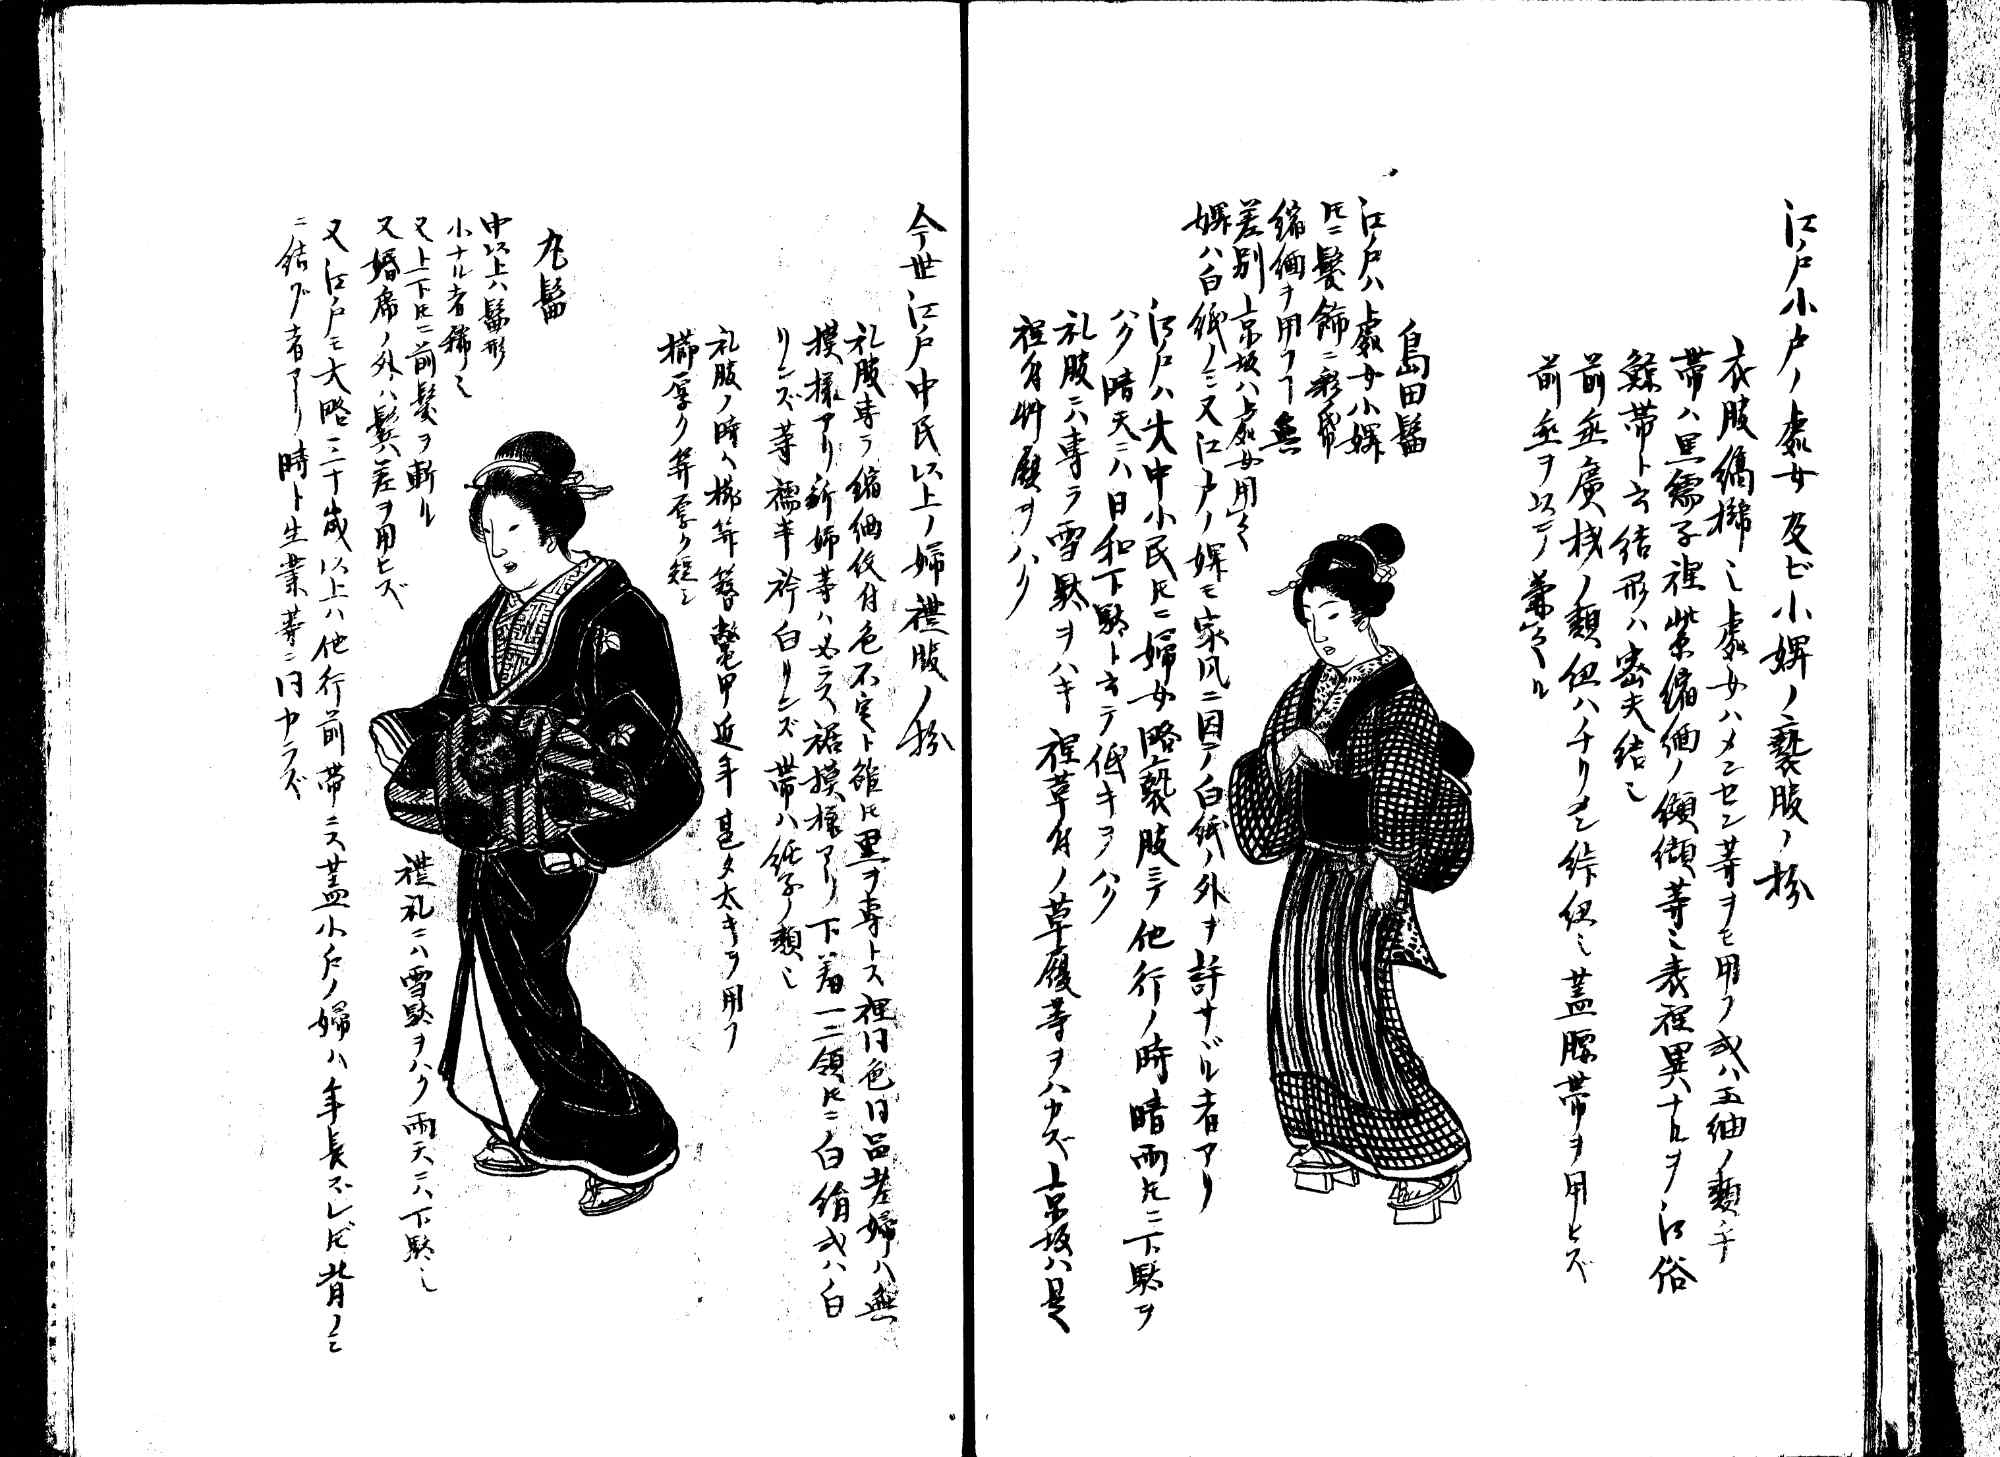 江戸小戸ノ處女及ビ小婢ノ褻服ノ扮
衣服縞揃ミ處女ハメンセン等ヲモ用フ或ハ玉紬ノ類ナ
帯ハ黒繻子裡紫縮緬ノ纐纈等ミ表裡異ナルヲ江俗
鯨帯ト云結形ハ密夫結ミ
前垂廣桟ノ類紐ハチリメン絎紐ミ蓋腰帯ヲ用ヒズ
前垂ヲ以テ兼ル
島田髷
江戸ハ處女小婢
トモニ髪飾ニ彩帛
縮緬ヲ用フコト無
差別京坂ハ處女用
婢ハ白紙ノミ又江戸ノ婢モ家風ニ因テ白紙ノ外ヲ許サザル者アリ
江戸ハ大中小民トモニ婦女略褻服ニテ他行ノ時晴雨トモニ下駄ヲ
ハク晴天ニハ日和下駄ト云テ低キヲハク
礼服ニハ専ラ雪駄ヲハキ裡草付ノ草履等ヲハカズ京坂ハ是
裡付草履ヲハク
今世江戸中民以上ノ婦禮服ノ扮
礼服専ラ縮緬紋付色不定ト雖トモ黒ヲ専トス裡同色同品老婦ハ無
摸様アリ新婦等ハ必ラス裾摸様アリ下着一二領トモニ白絹或ハ白
リンズ等襦半衿白リンズ帯ハ紙子ノ類ミ
礼服ノ時ハ櫛笄簪鼈甲近年甚タ太キヲ用フ
櫛厚ク笄厚ク短ミ
丸髷
中以上ハ髷形
小ナル者稀ミ
又上下トモニ前髪ヲ斬ル
又婚席ノ外ハ鬢差ヲ用ヒズ
禮礼ニハ雪駄ヲハク雨天ニハ下駄ミ
又江戸モ大略三十歳以上ハ他行前帯ニス蓋小戸ノ婦ハ年長ズレドモ背ノミ
ニ結ブ者アリ時ト生業等ニ因カラズ